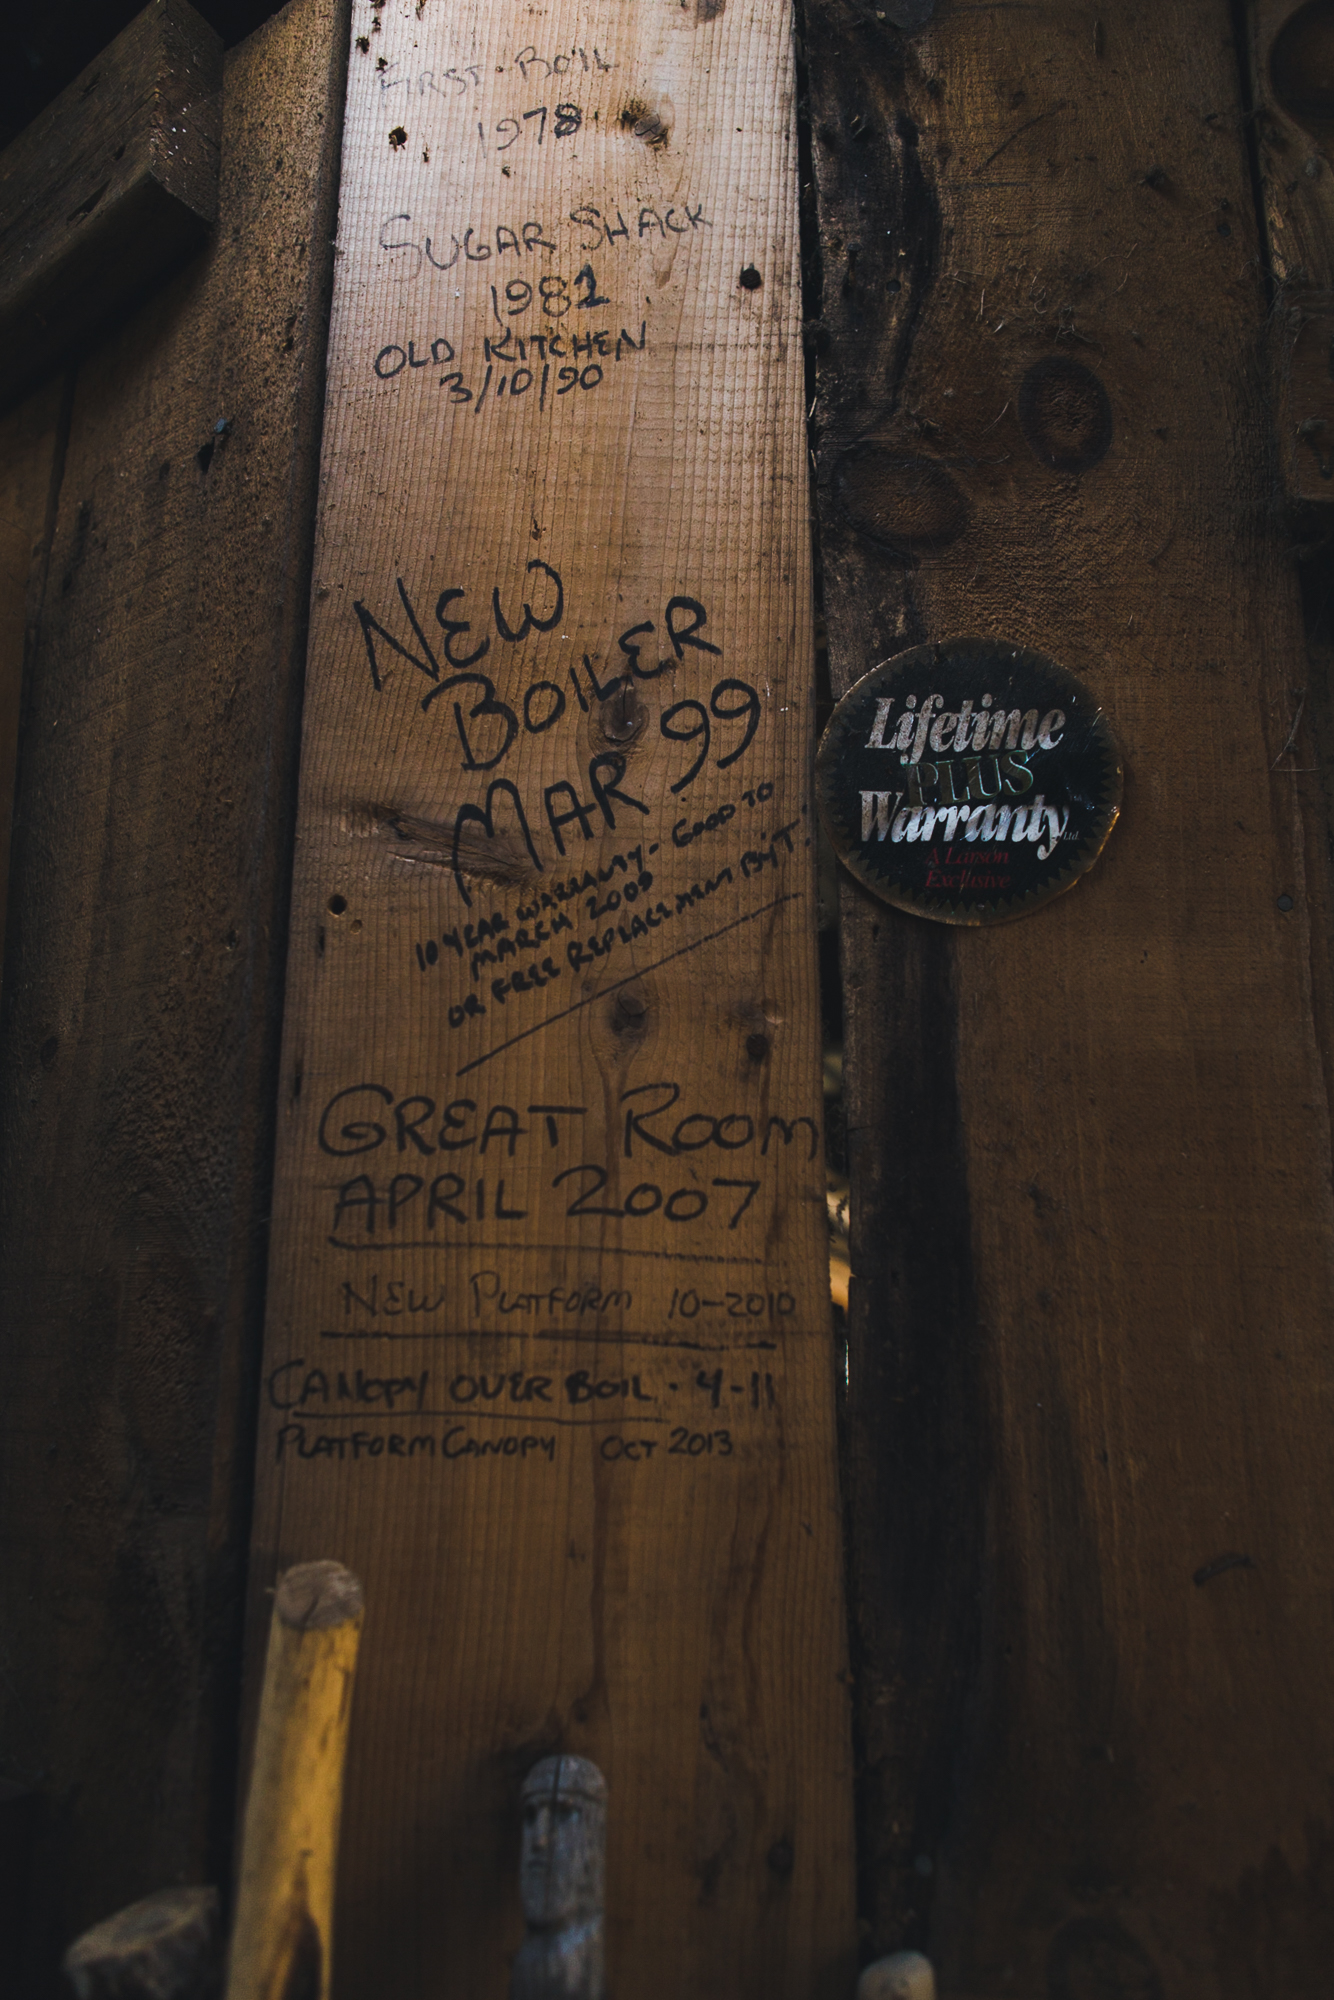 FIRST-BOIL
1978
SUGAR SHACK
1981
OLD KITCHEN
3/10/90
NEW
BOILER
MAR 99
10 YEAR WARRANTY - GOOD TO
MARCH 2009
OR FREE REPLACEMENT BY T!
GREAT ROOM
APRIL 2007
NEW PLATFORM 10-2010
CANOPY OVER BOIL - 4-11
PLATFORM CANOPY OCT 2013
Lifetime
PLUS
Warranty Ltd.
A Larson
Exclusive